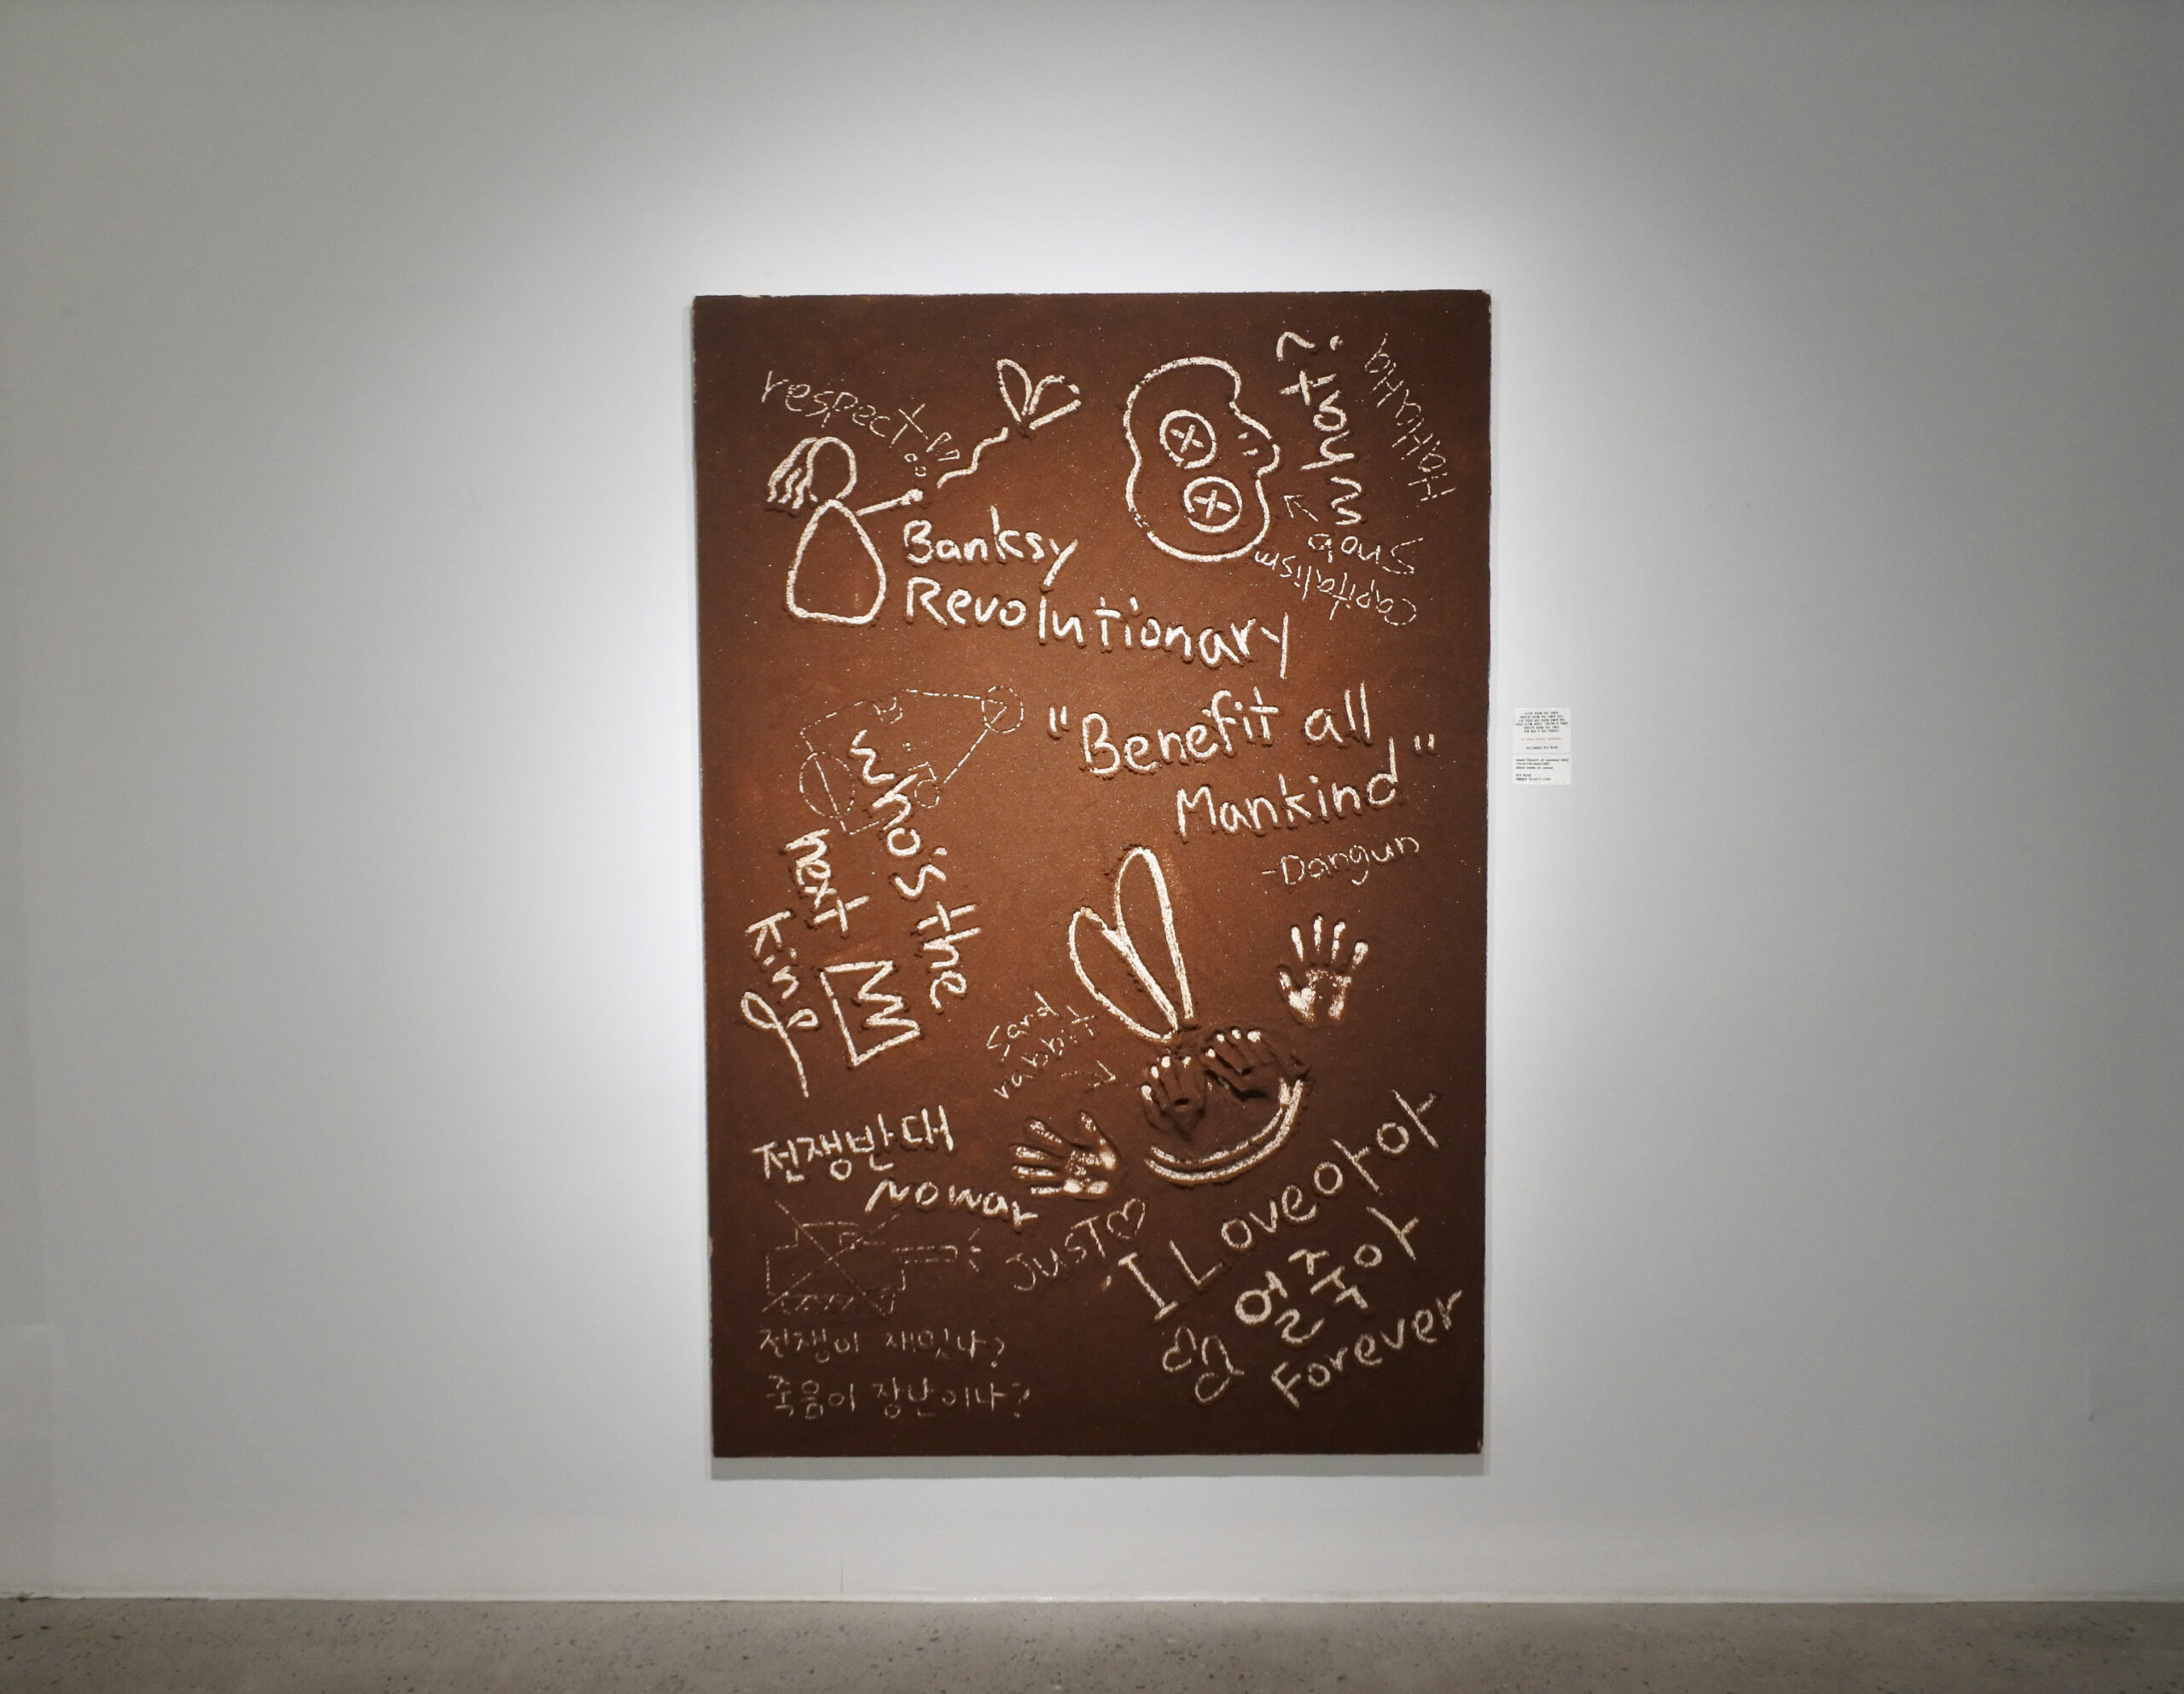 respect!!
Banksy
Revolutionary
what?!
HaHaHa
Snob
Capitalism
"Benefit all
Mankind"
-Dangun
Who's the
next
King
Sand
rabbit
전쟁반대
NO war
JUST♡
I Love아아
얼죽아
Forever
전쟁이 재밌나?
죽음이 장난이냐?